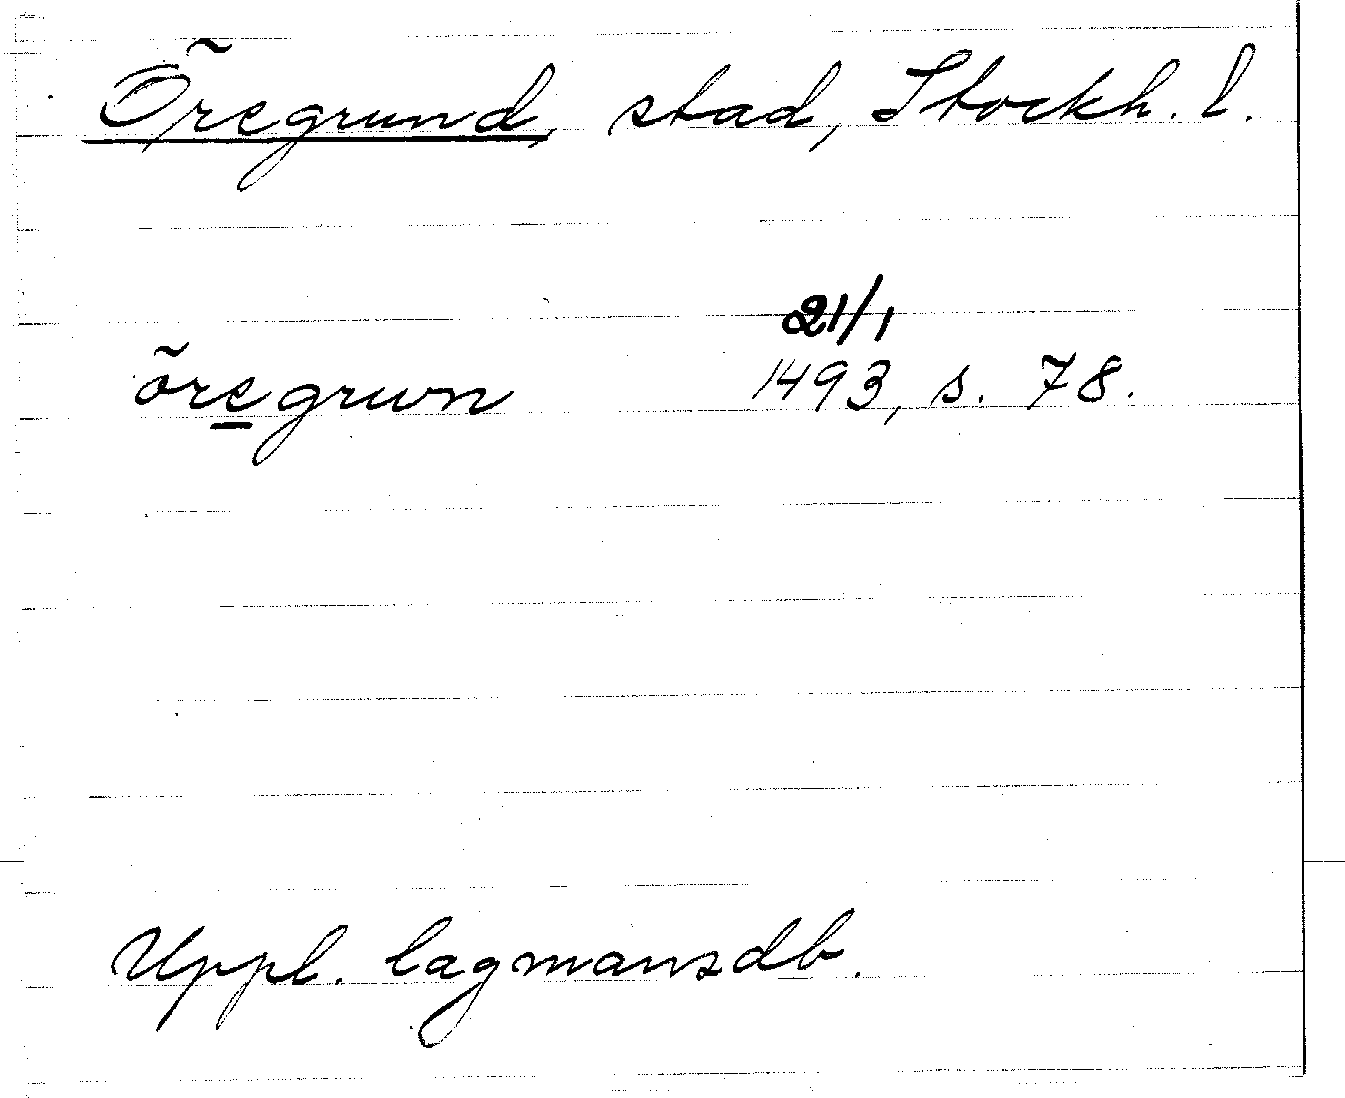 Öregrund, stad, Stockh. l.
21/1
öregrwn 1493, s. 78.
Uppl. lagmansdb.